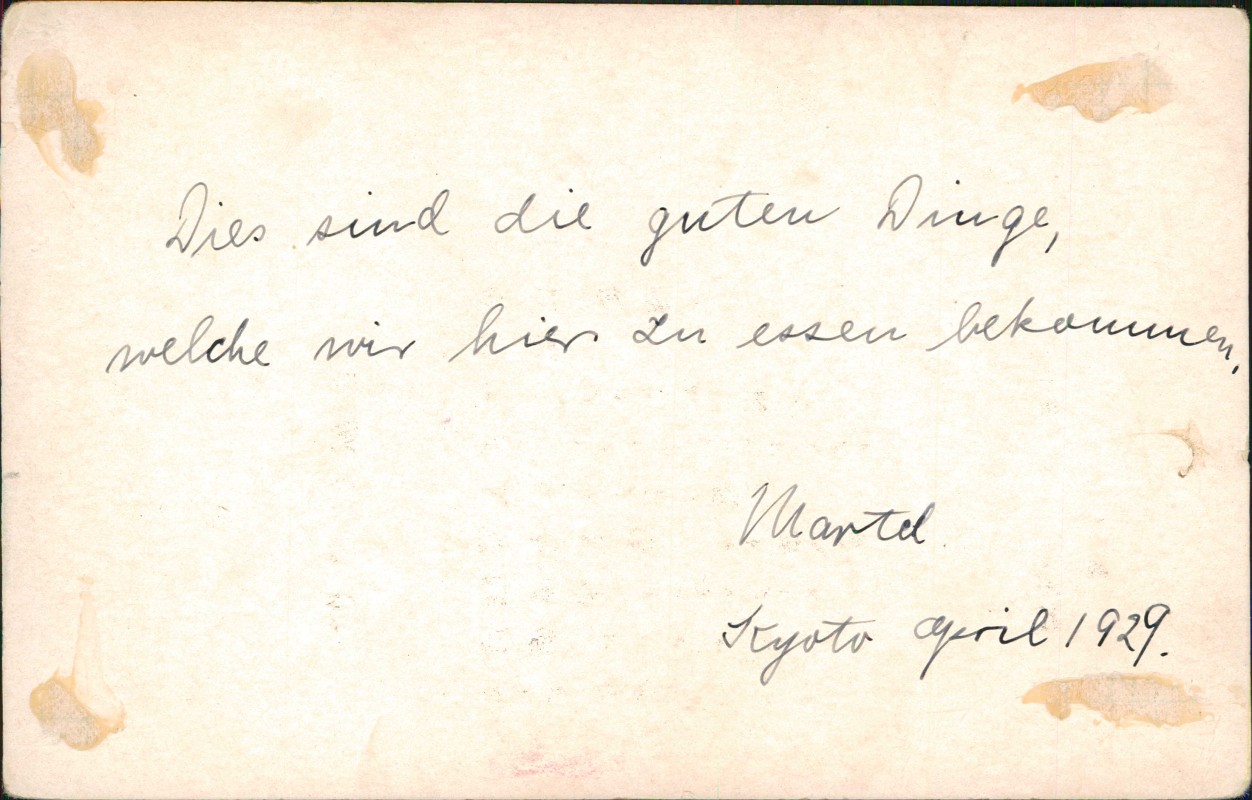 Dies sind die guten Dinge,
welche wir hier zu essen bekommen.
Martel
Kyoto April 1929.